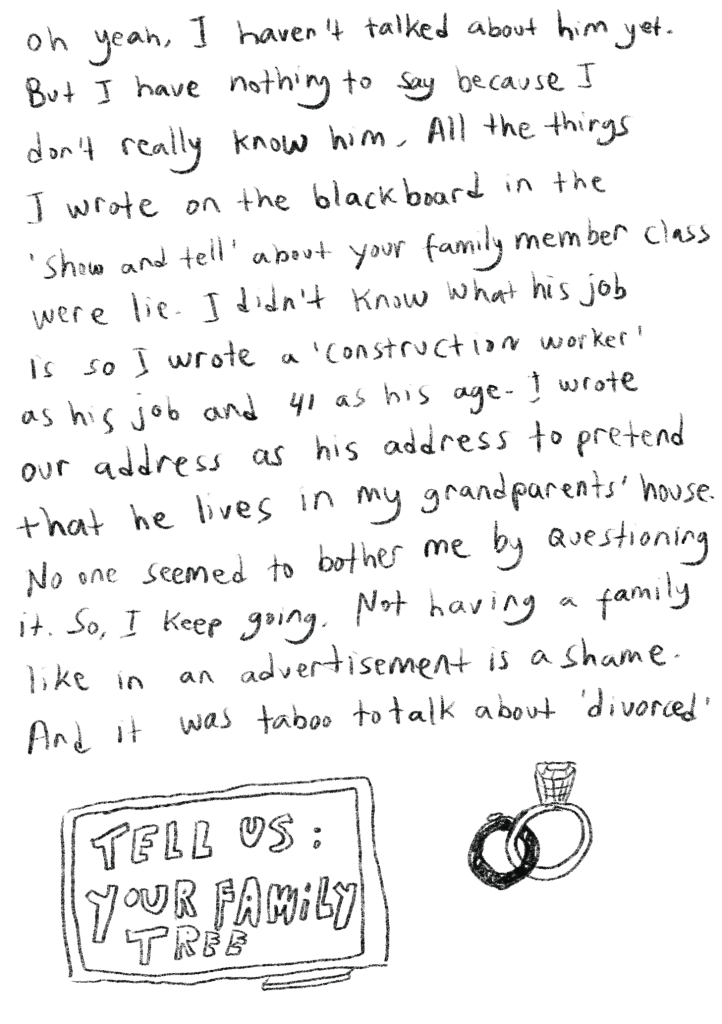 oh yeah, I haven't talked about him yet.
But I have nothing to say because I
don't really know him, All the things
I wrote on the blackboard in the
'show and tell' about your family member class
were lie. I didn't know what his job
is so I wrote a 'construction worker'
as his job and 41 as his age. I wrote
our address as his address to pretend
that he lives in my grandparents' house.
No one seemed to bother me by questioning
it. So, I keep going. Not having a family
like in an advertisement is a shame.
And it was taboo to talk about 'divorced'
TELL US:
YOUR FAMILY
TREE